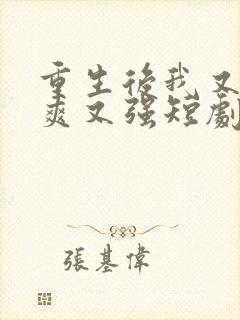 重生後我又
爽又強短劇
張基偉